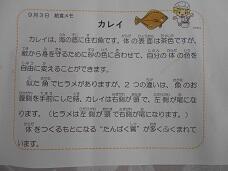 ９月３日　給食メモ
カレイ
カレイは、海の底に住む魚です。体の表面は茶色ですが、
敵から身を守るために砂の色に合わせて、自分の体の色を
自由に変えることができます。
似た魚でヒラメがありますが、２つの違いは、魚のお
腹側を手前にした時、カレイは右側が頭で、左側が尾になり
ます。（ヒラメは左側が頭で右側が尾になります。）
体をつくるもとになる“たんぱく質”が多くふくまれて
います。